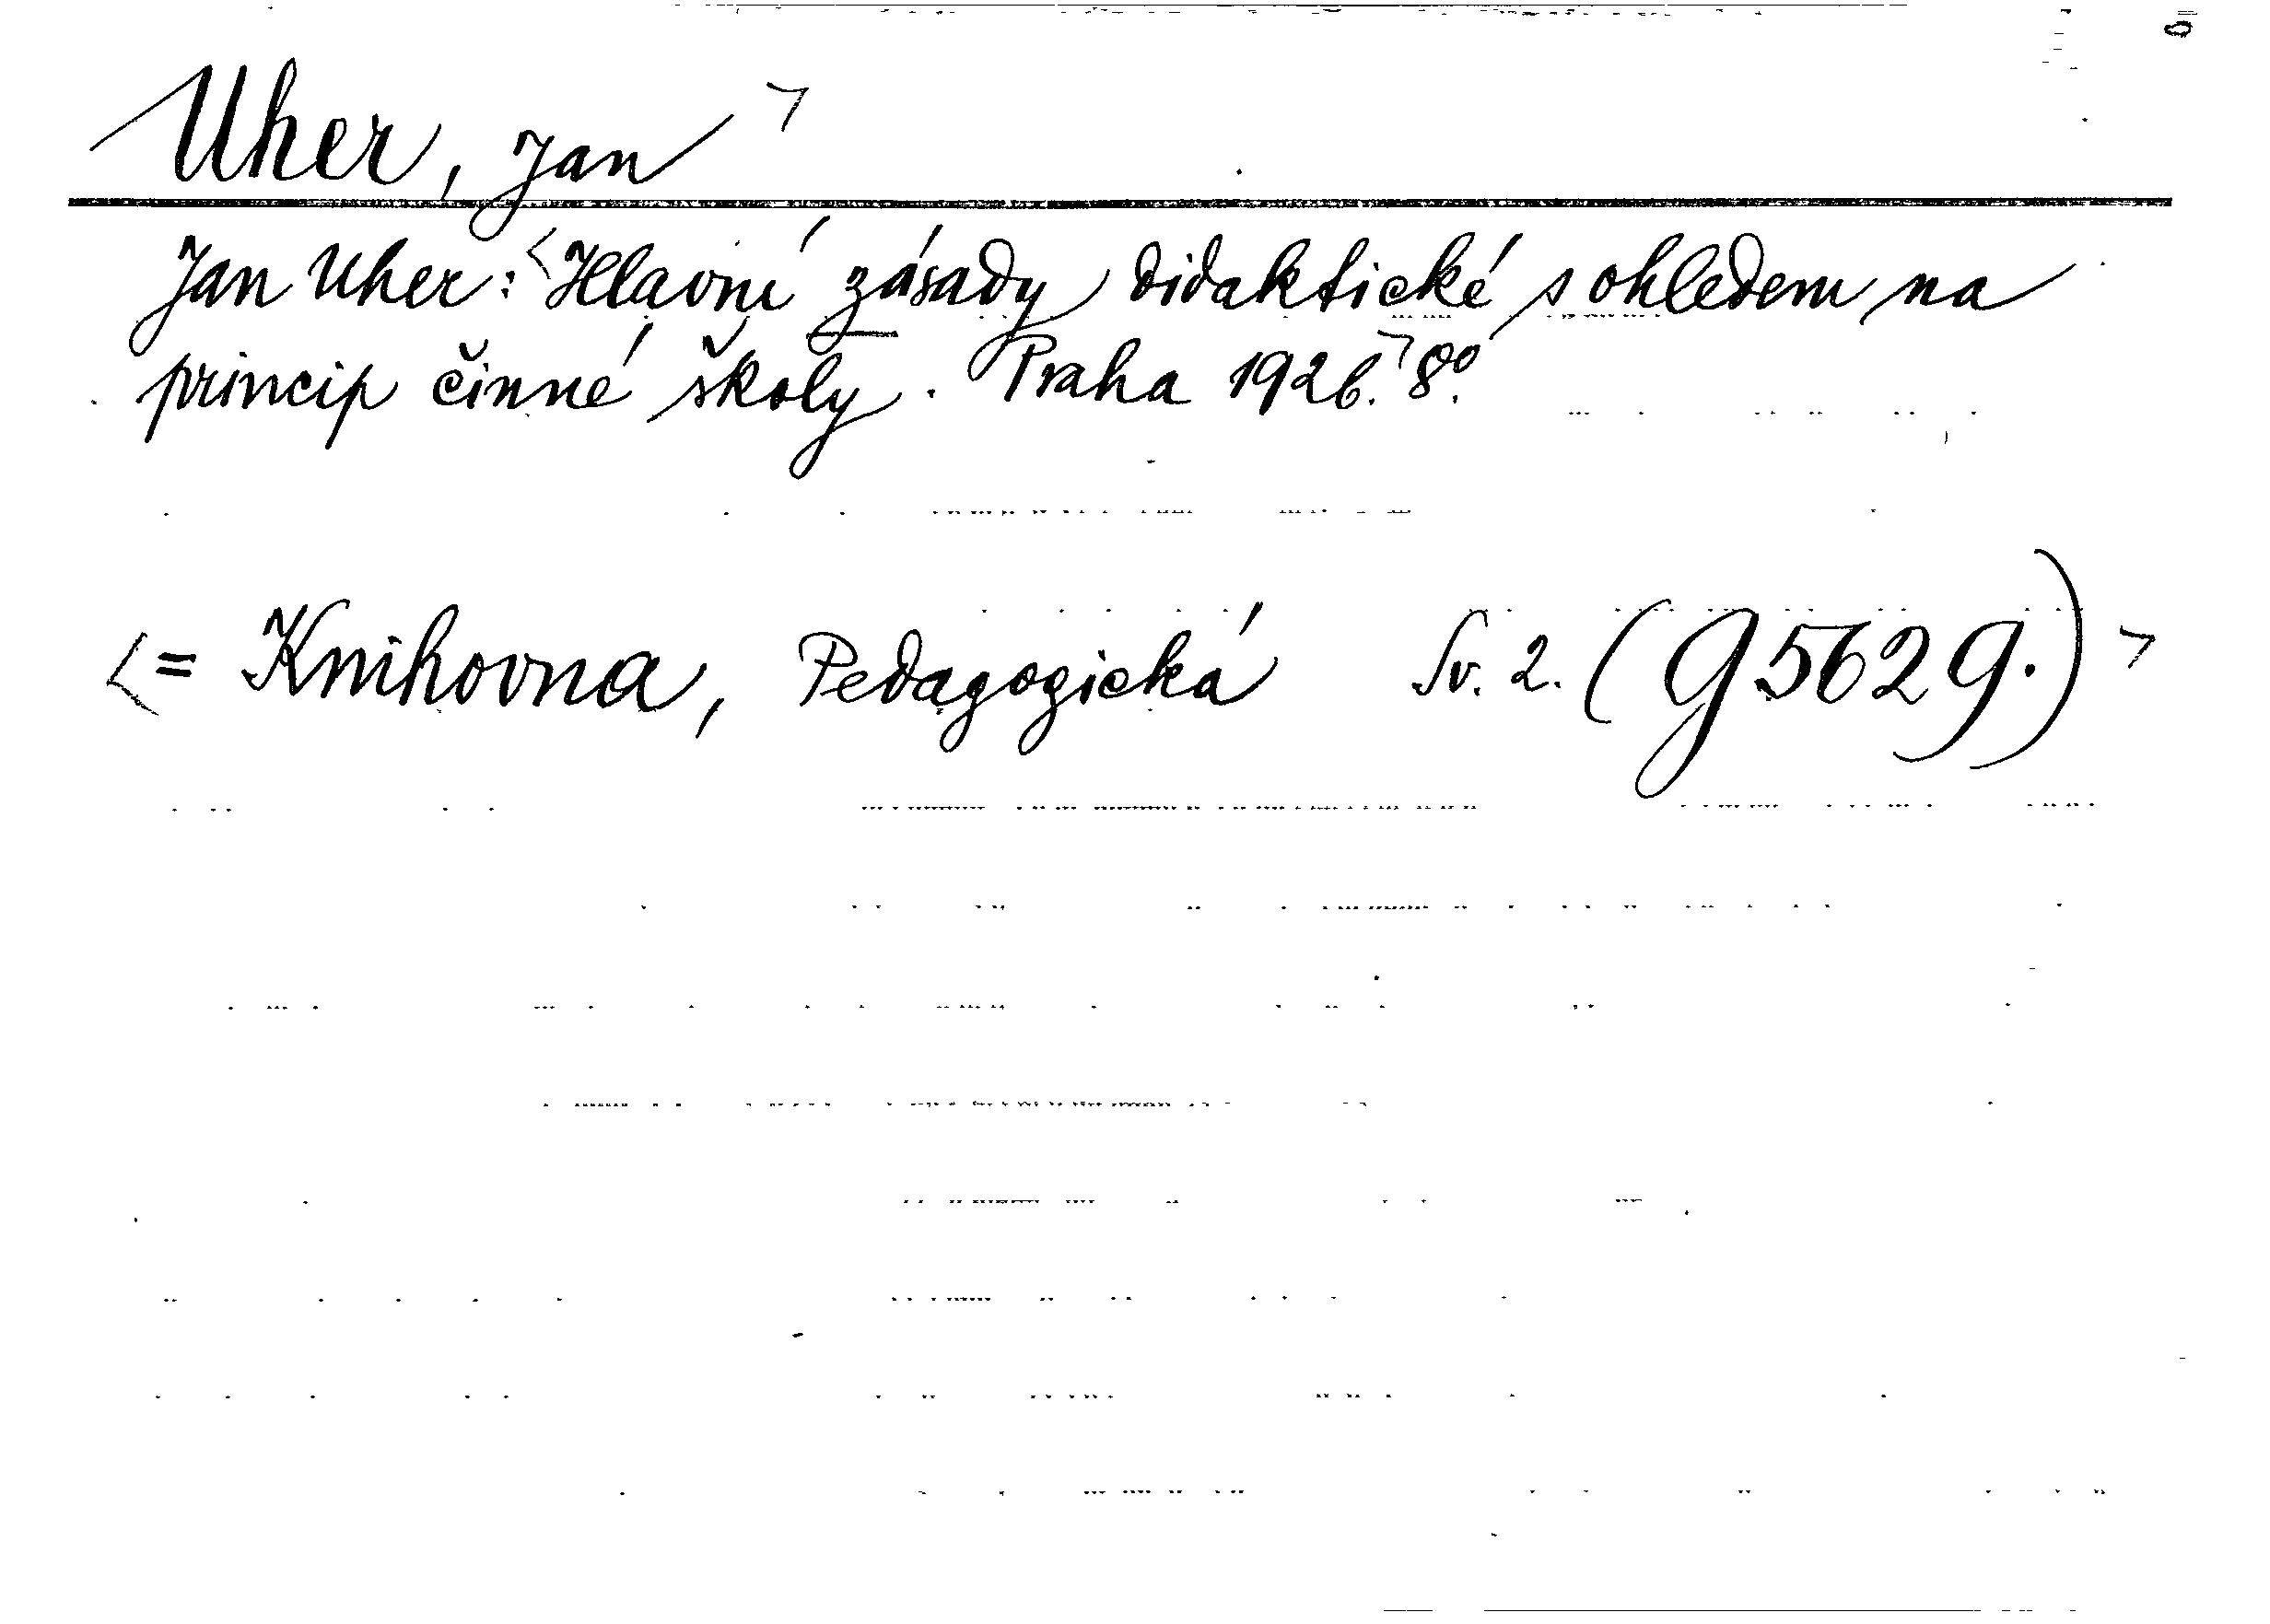 Uher, Jan ꓶ
Jan Uher: <Hlavní zásady didaktické s ohledem na
princip činné školy. Praha 1926.ꓶ 8º.
<= Knihovna, Pedagogická Sv. 2. (G5629.)>